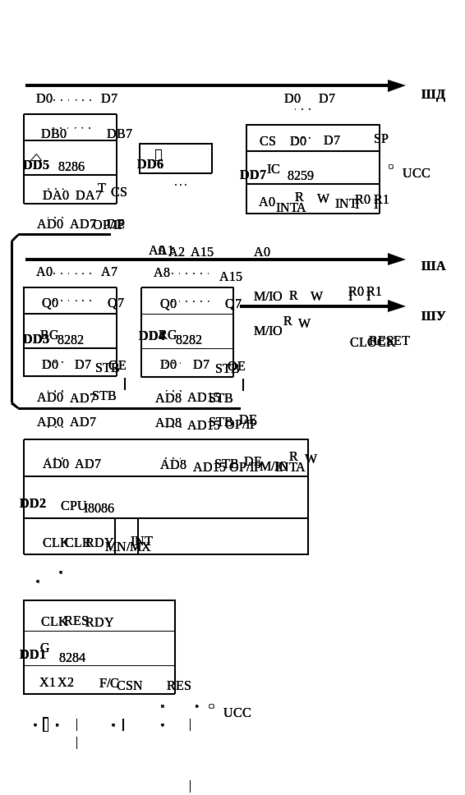 ШД
D0 D7 D0 D7
DB0 DB7
CS D0 D7 SP
DD5 8286 DD6
DD7 IC 8259 UCC
DA0 DA7 T CS
A0 INTA R W INT R0 R1
AD0 AD7 OP/IP DE
A0 A1 A2 A15 A0
ША
A0 A7 A8 A15
M/IO R W I I R0 R1
Q0 Q7 Q0 Q7
ШУ
M/IO R W
DD3 RG 8282 DD4 RG 8282
CLOCK RESET
D0 D7 STB OE D0 D7 STB OE
AD0 AD7 STB AD8 AD15 STB
AD0 AD7 AD8 AD15 STB OP/IP DE
AD0 AD7 AD8 AD15 STB OP/IP DE M/IO INTA R W
DD2 CPU I8086
CLK CLR RDY MN/MX INT
CLK RES RDY
DD1 G 8284
X1 X2 F/C CSN RES
UCC